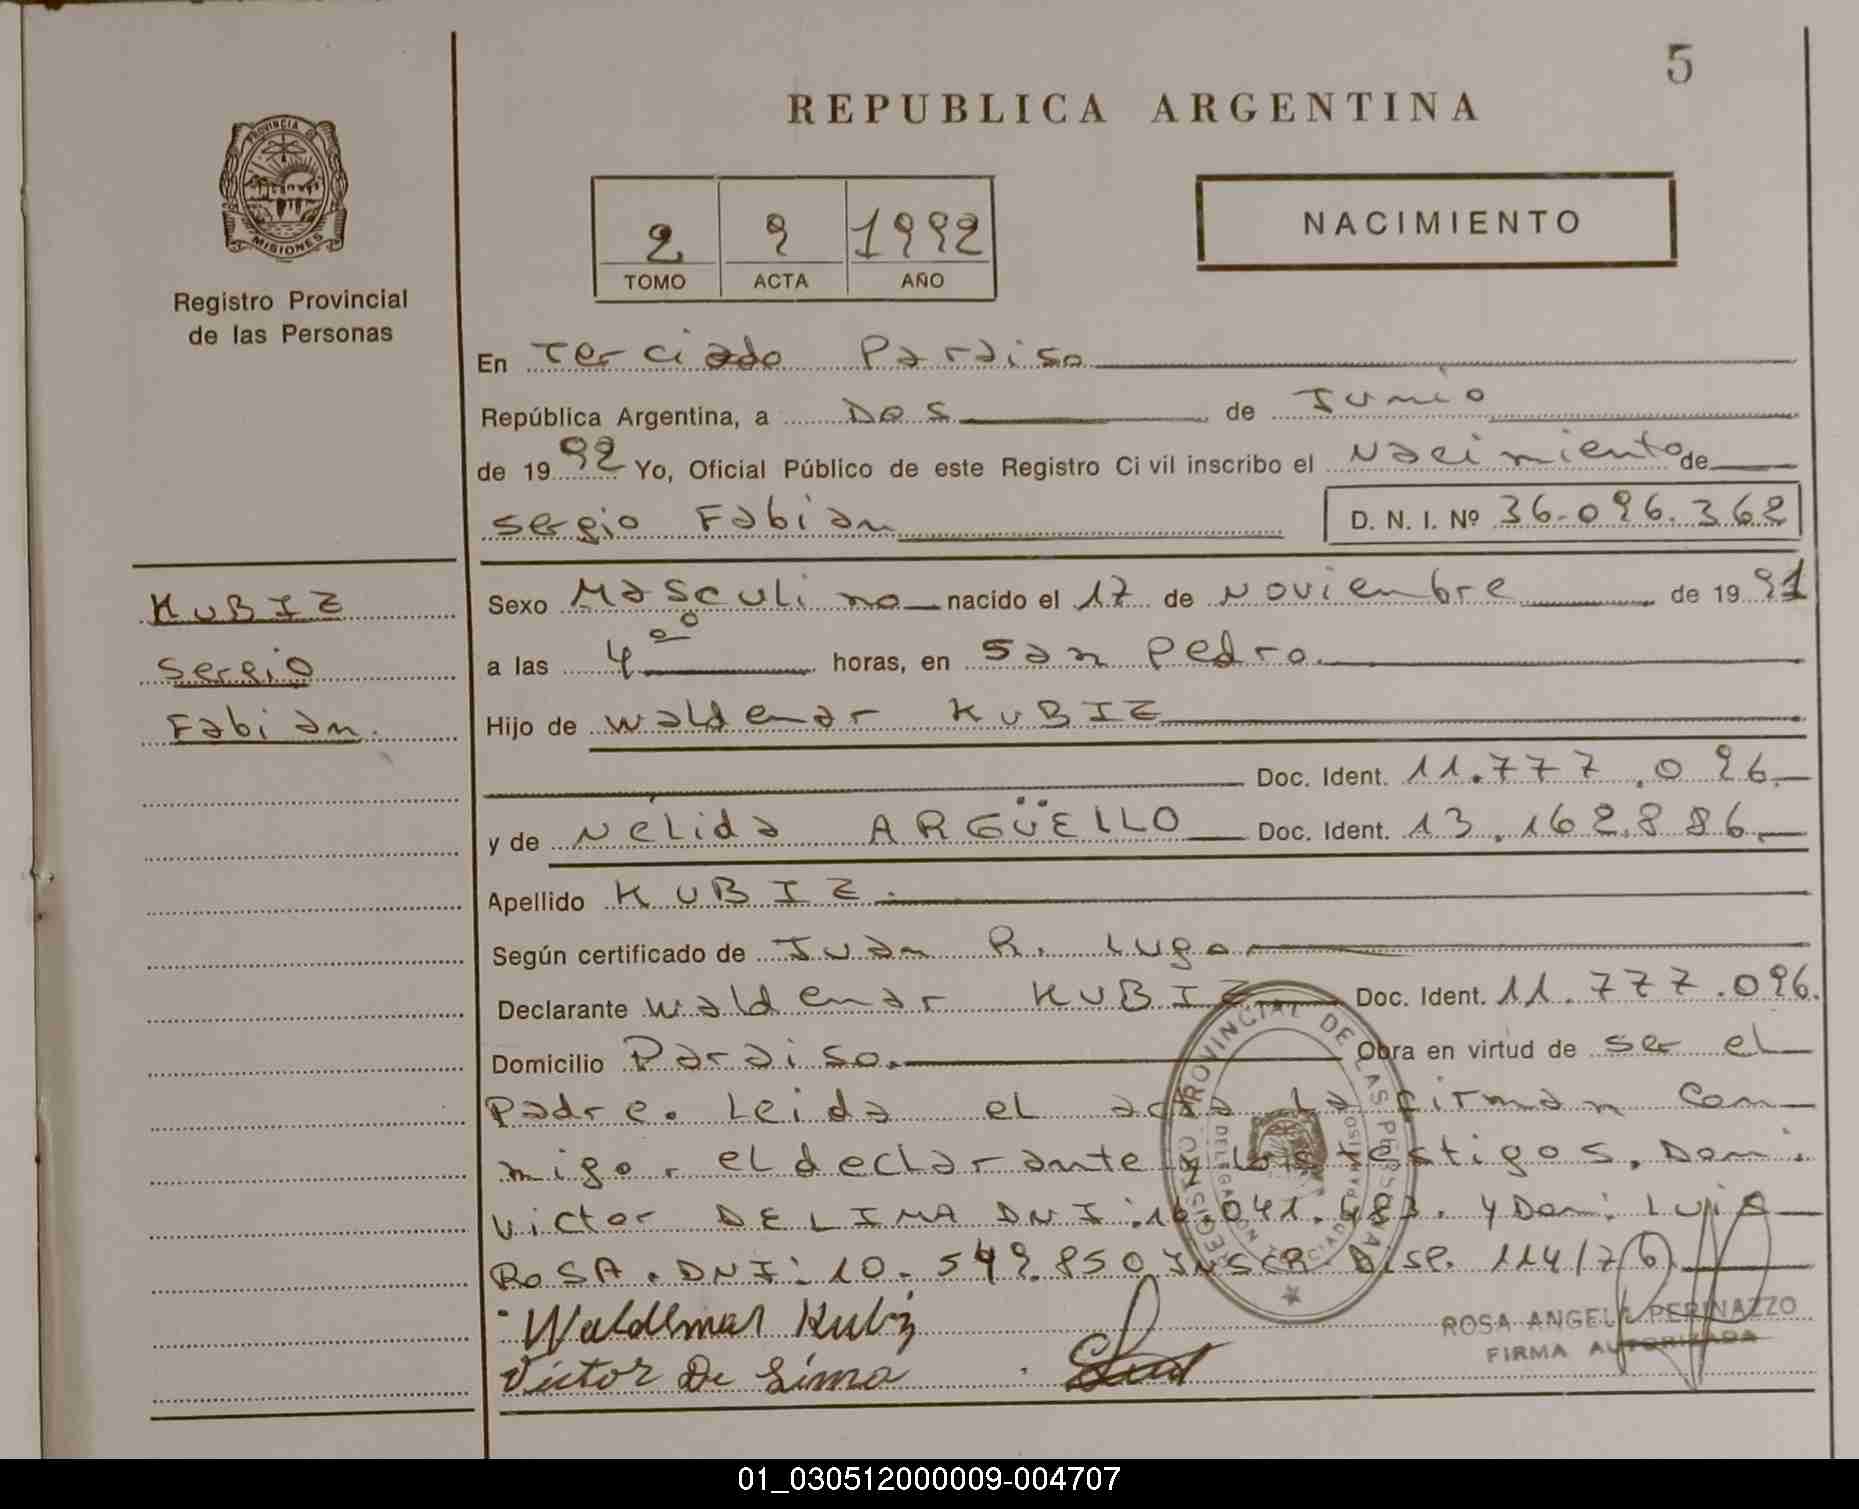 5
REPUBLICA ARGENTINA
PROVINCIA DE
MISIONES
Registro Provincial
de las Personas
2 9 1992
TOMO ACTA AÑO
NACIMIENTO
En Terciado Paraiso
República Argentina, a Dos de Junio
de 1992 Yo, Oficial Público de este Registro Civil inscribo el Nacimiento de
Sergio Fabian D. N. I. Nº 36.096.362
KUBIZ
Sergio
Fabian.
Sexo Masculino nacido el 17 de Noviembre de 1991
a las 4 00 horas, en San Pedro.
Hijo de Waldemar KUBIZ
Doc. Ident. 11.777.096
y de Nélida ARGÜELLO Doc. Ident. 13.162.886
Apellido KUBIZ.
Según certificado de Juan R. Lugo
Declarante Waldemar KUBIZ Doc. Ident. 11.777.096.
Domicilio Paraiso. Obra en virtud de ser el
padre. Leida el acta la firman con-
migo. el declarante y los testigos. Don:
Victor DELIMA DNI: 16.041.483. y Don: Luis
ROSA. DNI: 10.549.850 INSCR. DISP. 114/76
REGISTRO PROVINCIAL DE LAS PERSONAS
Waldemar Kubiz
Victor De Lima
ROSA ANGELA PERINAZZO
FIRMA AUTORIZADA
01_030512000009-004707